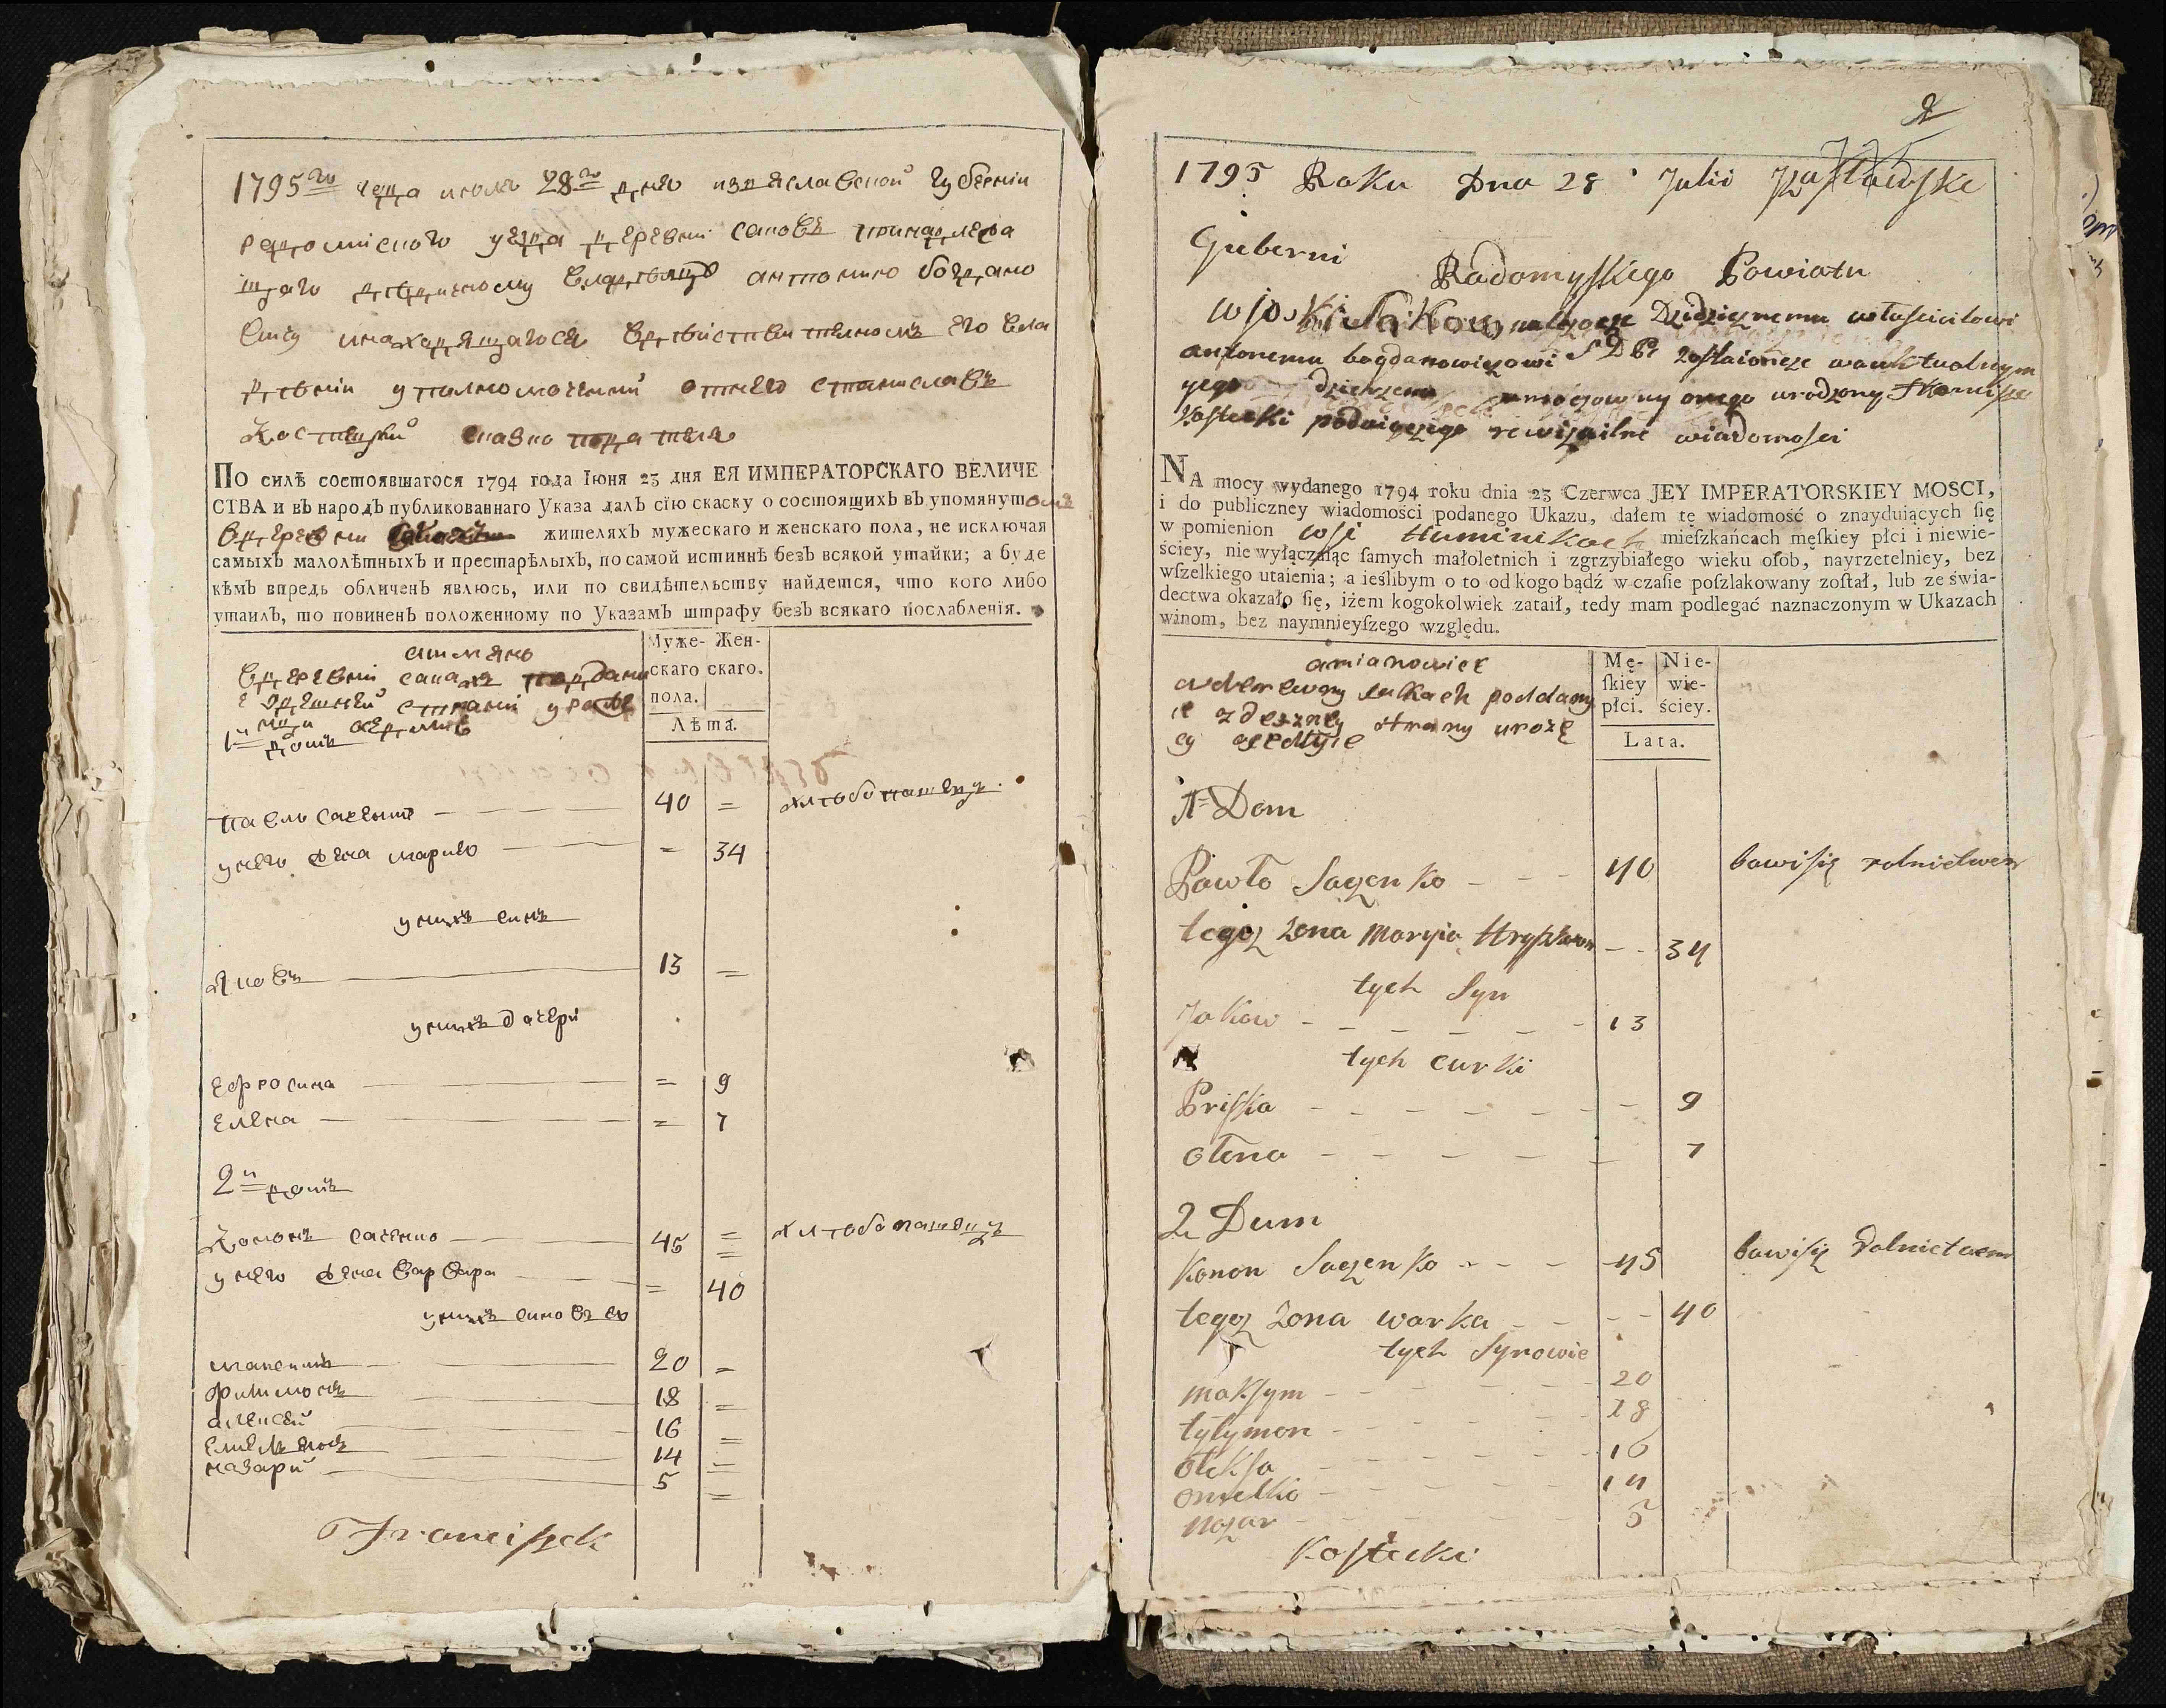 1795го года июля 28го дня изяславской губерніи
радомисного уезда деревни саковъ принадлежа
щаго дѣдичному владѣлцу антонию богдано
вичу инаходящагося вдѣйствителномъ его вла
дѣнии уполномоченный отнего станиславъ
Костецкий сказкоподатель
ПО силѣ состоявшагося 1794 года Іюня 23 дня ЕЯ ИМПЕРАТОРСКАГО ВЕЛИЧЕ
СТВА и въ народъ публикованнаго Указа далъ сїю скаску о состоящихъ въ упомянутомъ
вдеревни жителяхъ мужескаго и женскаго пола, не исключая
самыхъ малолѣтныхъ и престарѣлыхъ, по самой истиннѣ безъ всякой утайки; а буде
кѣмъ впредь обличенъ явлюсь, или по свидѣтельству найдется, что кого либо
утаилъ, то повиненъ положенному по Указамъ штрафу безъ всякаго послабленія.
а имянно
Муже- Жен-
вдеревни саках поддани
скаго скаго.
е здешней страни уроже
пола.
Лѣта.
1й домъ
павло саченко 40 = хлѣбопашецъ
унего жена мария = 34
унихъ синъ
Яковъ 13 =
унихъ дочери
Ефросина = 9
Елена = 7
2й домъ
Кононъ саченко 45 = хлѣбопашецъ
унего жена варвара = 40
унихъ синовья
максимъ 20 =
филимонъ 18 =
алексей 16 =
Емельянъ 14 =
назарий 5 =
Franciszek
2
1795 Roku Dna 28 Julii Izasławske
Guberni Radomyſkiego Powiatu
wſi Sakow należącze Dzidzicznemu właſcicilowi
antonemu bogdanowiczowi zoſtaiącze waaktualnym
yego dzierzeniu umocowany onego urodzony
Koſtecki podaiączego rewizailne wiadomoſci
NA mocy wydanego 1794 roku dnia 23 Czerwca JEY IMPERATORSKIEY MOSCI,
i do publiczney wiadomości podanego Ukazu, dałem tę wiadomość o znayduiących ſię
w pomienion wſi Huminikach mieſzkańcach męſkiey płci i niewie-
ściey, nie wyłączaiąc ſamych małoletnich i zgrzybiałego wieku oſob, nayrzetelniey, bez
wſzelkiego utaienia; a ieślibym o to od kogo bądź w czaſie poſzlakowany zoſtał, lub ze świa-
dectwa okazało ſię, iżem kogokolwiek zataił, tedy mam podlegać naznaczonym w Ukazach
winom, bez naymnieyſzego względu.
amianowicę
Mę- Nie-
wderewny sakach poddany
ſkiey wie-
ie zdeszney strany urożę
płci. ściey.
Lata.
1 Dom
Pawło Saczenko 40 bawiſię rolnictwem
tegoz zona maryia 34
tych Syn
Jakow 13
tych curki
Priſka 9
olena 7
2 Dum
Konon Saczenko 45 bawiſię Rolnictwem
tegoz zona warka 40
tych Synowie
makſym 20
tylymon 18
olekſa 16
omelko 14
nazar 5
Koſtecki